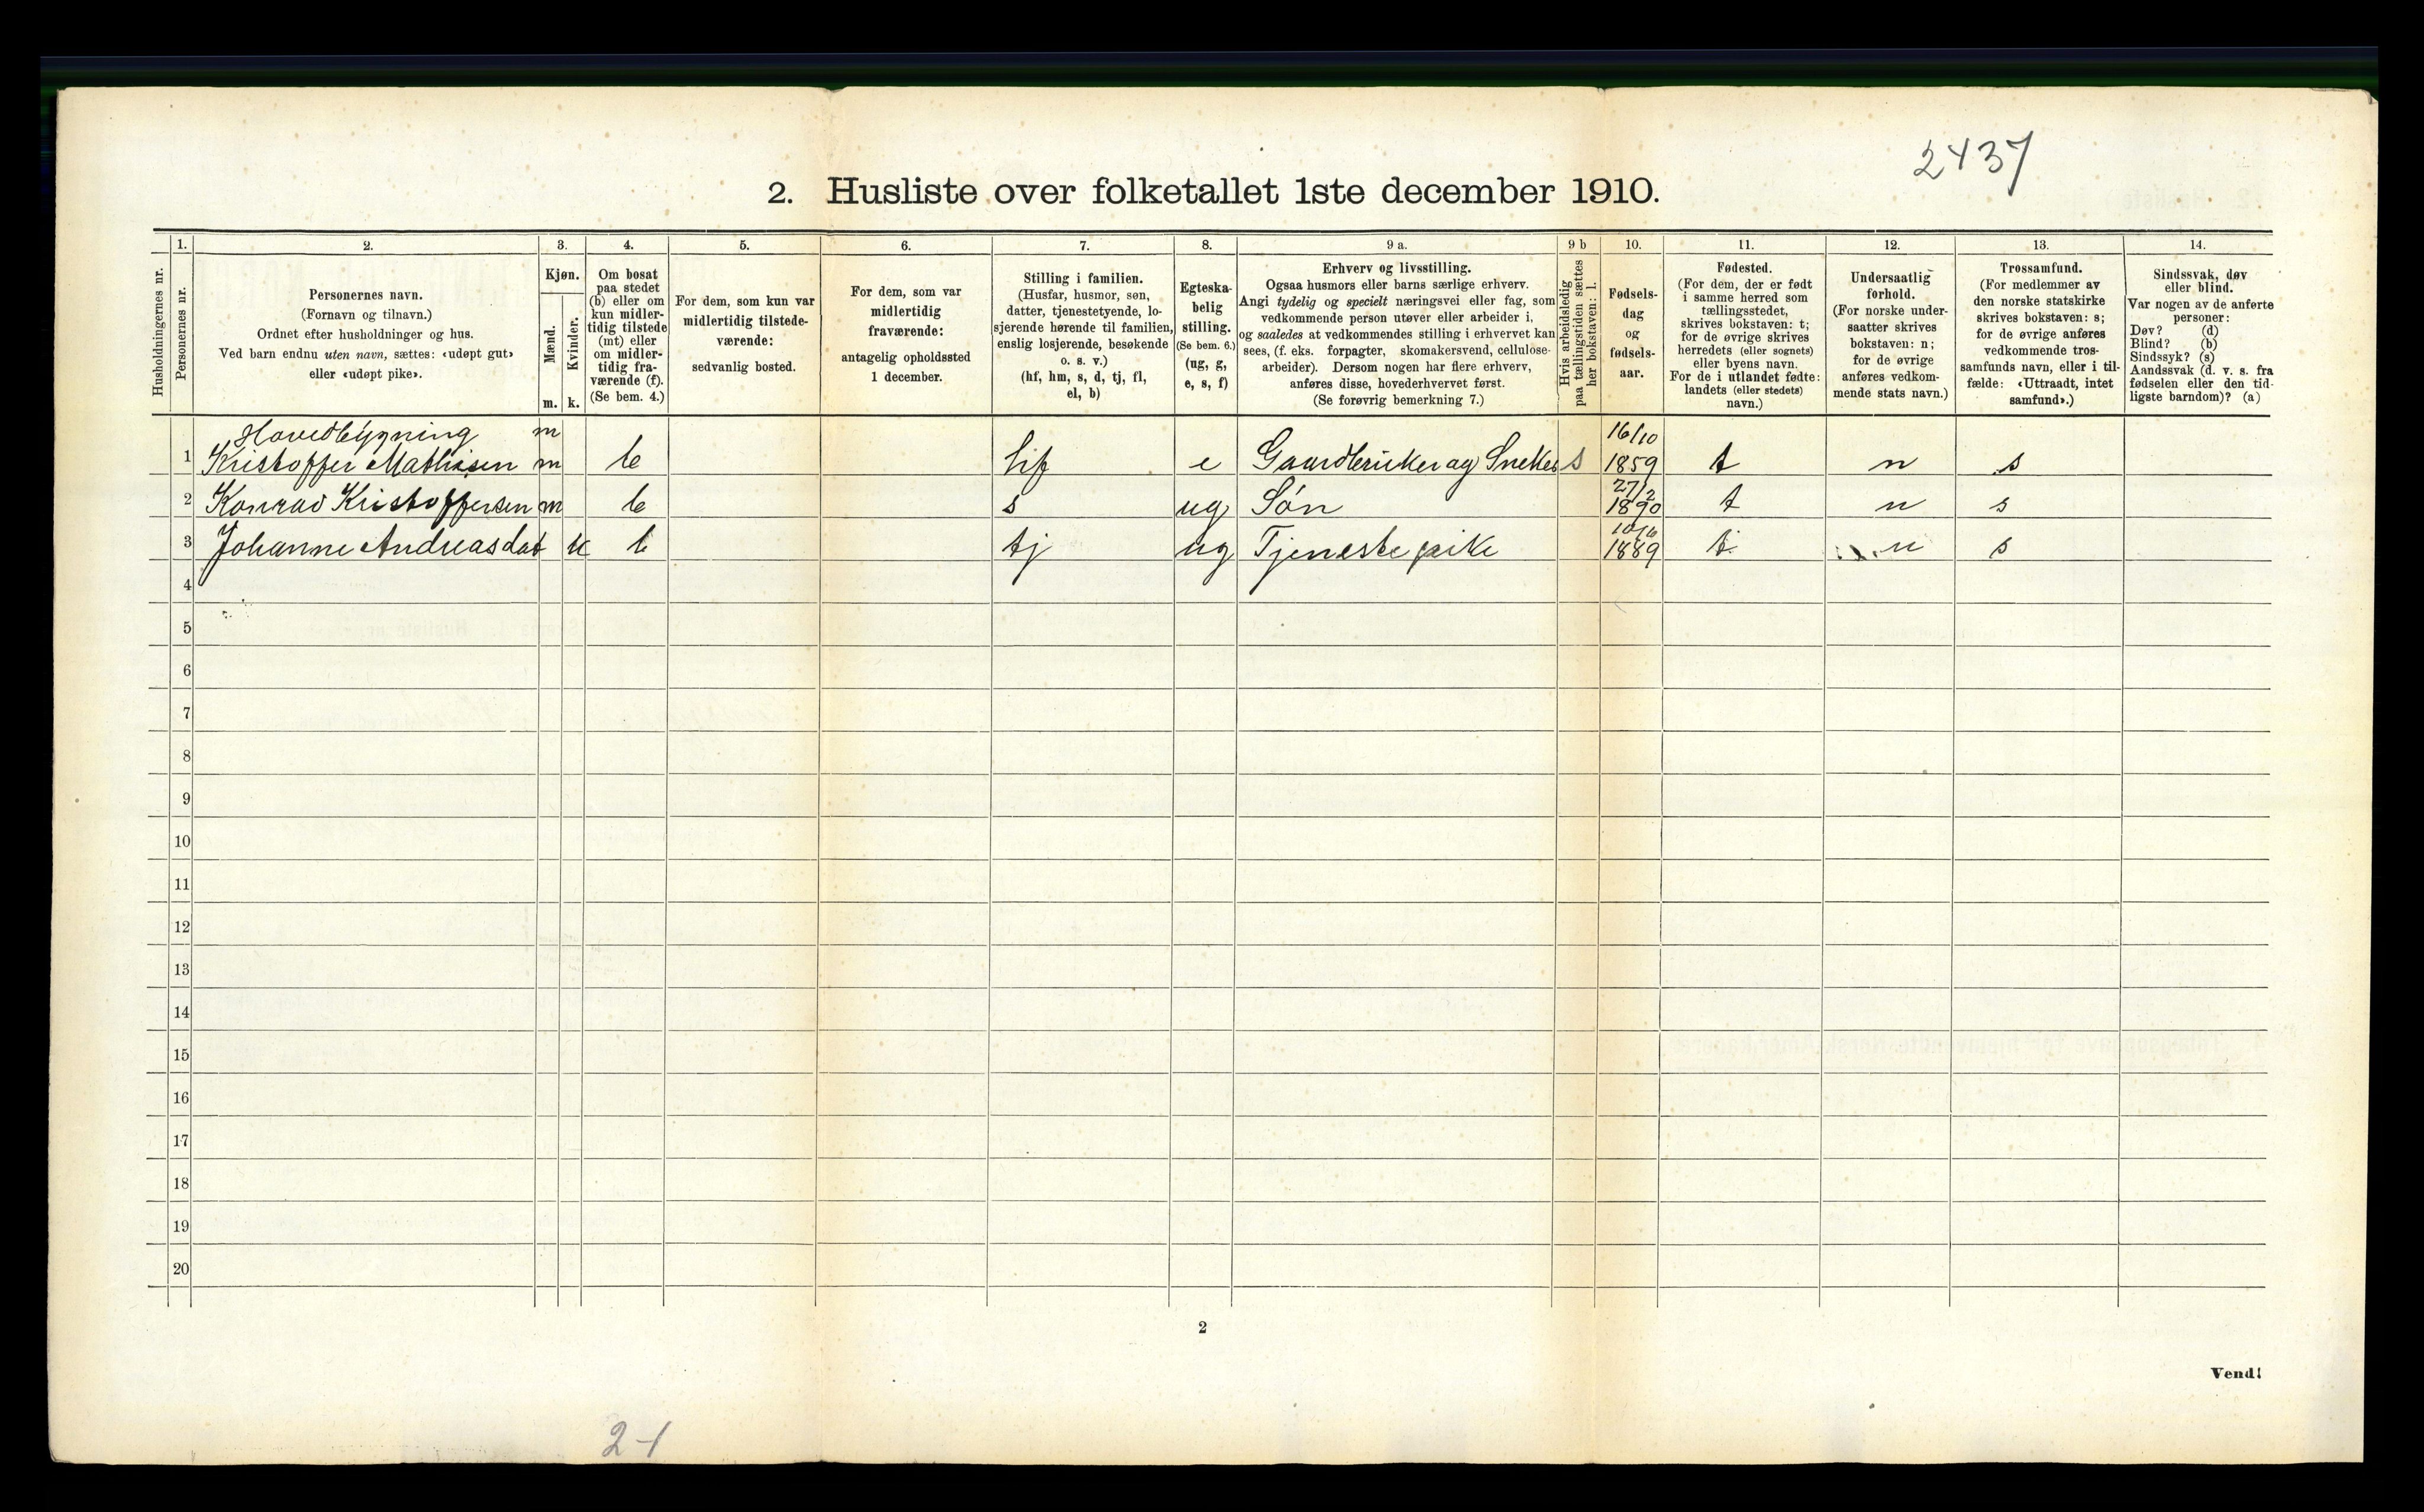 2437
2. Husliste over folketallet 1ste december 1910.
1. 2. 3. 4. 5. 6. 7. 8. 9 a. 9 b 10. 11. 12. 13. 14.
Husholdningernes nr.
Personernes nr.
Personernes navn.
(Fornavn og tilnavn.)
Ordnet efter husholdninger og hus.
Ved barn endnu uten navn, sættes: «udøpt gut»
eller «udøpt pike».
Kjøn.
Mænd.
Kvinder.
m. k.
Om bosat
paa stedet
(b) eller om
kun midler-
tidig tilstede
(mt) eller
om midler-
tidig fra-
værende (f).
(Se bem. 4.)
For dem, som kun var
midlertidig tilstede-
værende:
sedvanlig bosted.
For dem, som var
midlertidig
fraværende:
antagelig opholdssted
1 december.
Stilling i familien.
(Husfar, husmor, søn,
datter, tjenestetyende, lo-
sjerende hørende til familien,
enslig losjerende, besøkende
o. s. v.)
(hf, hm, s, d, tj, fl,
el, b)
Egteska-
belig
stilling.
(Se bem. 6.)
(ug, g,
e, s, f)
Erhverv og livsstilling.
Ogsaa husmors eller barns særlige erhverv.
Angi tydelig og specielt næringsvei eller fag, som
vedkommende person utøver eller arbeider i,
og saaledes at vedkommendes stilling i erhvervet kan
sees, (f. eks. forpagter, skomakersvend, cellulose-
arbeider). Dersom nogen har flere erhverv,
anføres disse, hovederhvervet først.
(Se forøvrig bemerkning 7.)
Hvis arbeidsledig
paa tællingstiden sættes
her bokstaven: l.
Fødsels-
dag
og
fødsels-
aar.
Fødested.
(For dem, der er født
i samme herred som
tællingsstedet,
skrives bokstaven: t;
for de øvrige skrives
herredets (eller sognets)
eller byens navn.
For de i utlandet fødte:
landets (eller stedets)
navn.)
Undersaatlig
forhold.
(For norske under-
saatter skrives
bokstaven: n;
for de øvrige
anføres vedkom-
mende stats navn.)
Trossamfund.
(For medlemmer av
den norske statskirke
skrives bokstaven: s;
for de øvrige anføres
vedkommende tros-
samfunds navn, eller i til-
fælde: «Uttraadt, intet
samfund».)
Sindssvak, døv
eller blind.
Var nogen av de anførte
personer:
Døv? (d)
Blind? (b)
Sindssyk? (s)
Aandssvak (d. v. s. fra
fødselen eller den tid-
ligste barndom)? (a)
Hovedbygning m 16/10
1 Kristoffer Mathisen m b hf e Gaardbruker og Sneker s 1859 t n s
27/2
2 Konrad Kristoffersen m b s ug Søn 1890 t n s
10/6
3 Johanne Andreasdat k b tj ug Tjenestepike 1889 t n s
4
5
6
7
8
9
10
11
12
13
14
15
16
17
18
19
20
2
Vend!
2-1